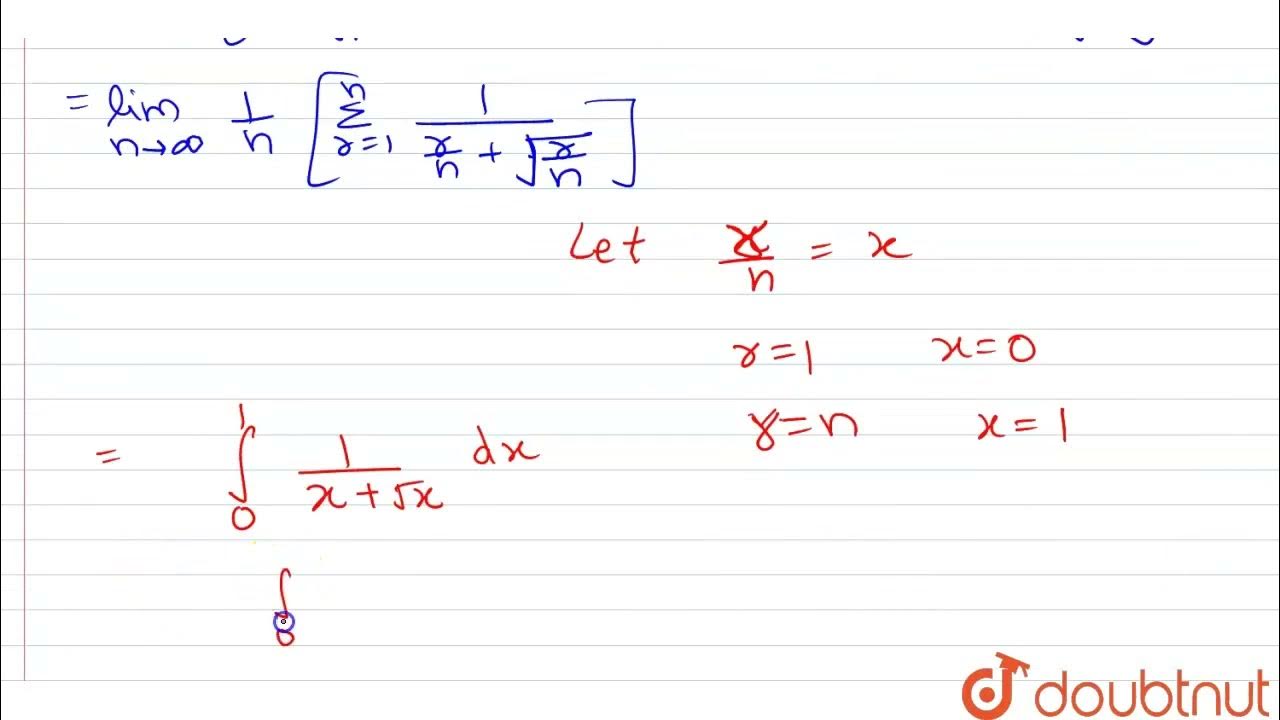 = lim n→∞ 1/n [ n Σ r=1 1/(r/n + √(r/n)) ]
Let r/n = x
r=1 x=0
r=n x=1
= ∫ 1 0 1/(x+√x) dx
∫ 0
doubtnut